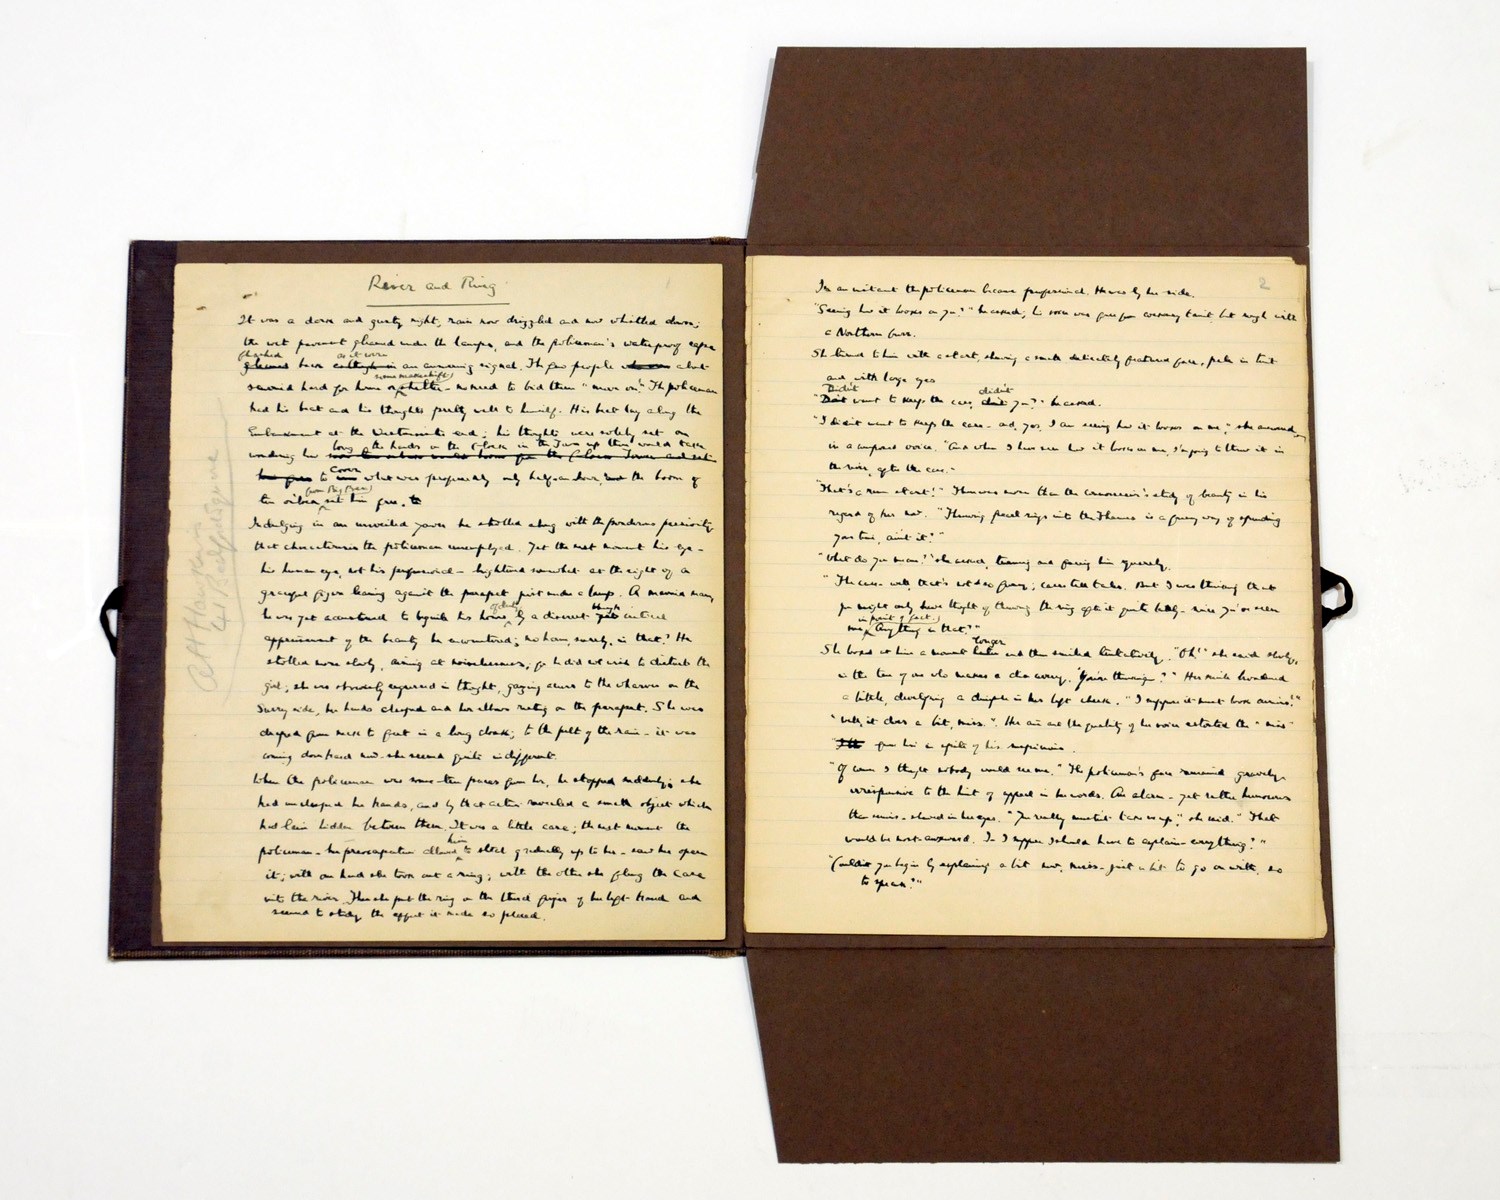 River and Ring
It was a dark and gusty night, rain now drizzled and now whistled down;
the wet pavement gleamed under the lamps, and the policeman's waterproof cape
flashed as it were
gleamed an signal. The few people about
some makeshift
hard for home or shelter - no need to bid them "move on". The policeman
had his beat and his thoughts pretty well to himself. His beat lay along the
Embankment at the Westminster end; his thoughts were solely set on
long the hands on the in the would take
wondering how
cover
to what was properly only half-an-hour, the boom of
(from Big Ben)
ten o'clock set him free.
Indulging in an unveiled yawn he strolled along with the ponderous
that characterises the policeman unemployed. Yet the next moment his eye -
his human eye, not his professional - brightened somewhat at the sight of a
graceful figure leaning against the parapet just under a lamp. A married man,
of duty though
he was yet accustomed to beguile his hours by a discreet yet critical
appraisement of the beauty he encountered; no harm, surely, in that? He
strolled more slowly, aiming at noiselessness, for he did not wish to disturb the
girl; she was obviously engrossed in thought, gazing across to the wharves on the
Surrey side, her hands clasped and her elbows resting on the parapet. She was
draped from neck to feet in a long cloak; to the pelt of the rain - it was
coming down hard now - she seemed quite indifferent.
When the policeman was some ten paces from her, he stopped suddenly; she
had unclasped her hands, and by that action revealed a small object which
had lain hidden between them. It was a little case; the next moment the
him
policeman - her preoccupation allowed to steal gradually up to her - saw her open
it; with one hand she took out a ring; with the other she flung the case
into the river. Then she put the ring on the third finger of her left hand and
seemed to study the effect it made so placed.
A H Hawkins
41
2
In an instant the policeman became professional. He was by her side.
"Seeing how it looks on you?" he asked; his voice was free from cockney taint, but rough with
a Northern burr.
She turned to him with a start, showing a small delicately featured face, pale in tint
and with large eyes
Didn't didn't
"Don't want to keep the case, don't you?" he asked.
"I didn't want to keep the case - and, yes, I am seeing how it looks on me," she answered
in a composed voice. "And when I have seen how it looks on me, I'm going to throw it in
the river, after the case."
"That's a rum start!" There was more than the connoisseur's study of beauty in his
regard of her now. "Throwing jewel rings into the Thames is a funny way of spending
your time, ain't it?"
"What do you mean?" she asked, turning and facing him squarely.
"The case - well, that's not so funny; cases tell tales. But I was thinking that
you might only have thought of throwing the ring after it quite lately - since you've seen
in point of fact.
me. Anything in that?"
longer
She looked at him a moment and then smiled tentatively. "Oh!" she said slowly,
in the tone of one who makes a discovery. "You're thinking?" Her smile broadened
a little, developing a dimple in her left cheek. "I suppose it must look curious!"
"Well, it does a bit, miss." Her air and the quality of her voice extorted the "miss"
from him in spite of his suspicions.
"Of course I thought nobody would see me." The policeman's face remained gravely
irresponsive to the hint of appeal in her words. An alarm - yet rather humorous
than serious - showed in her eyes. "You really mustn't take me up," she said. "That
would be most awkward. For I suppose I should have to explain - everything?"
"Couldn't you begin by explaining a bit now, miss - just a bit to go on with, so
to speak?"